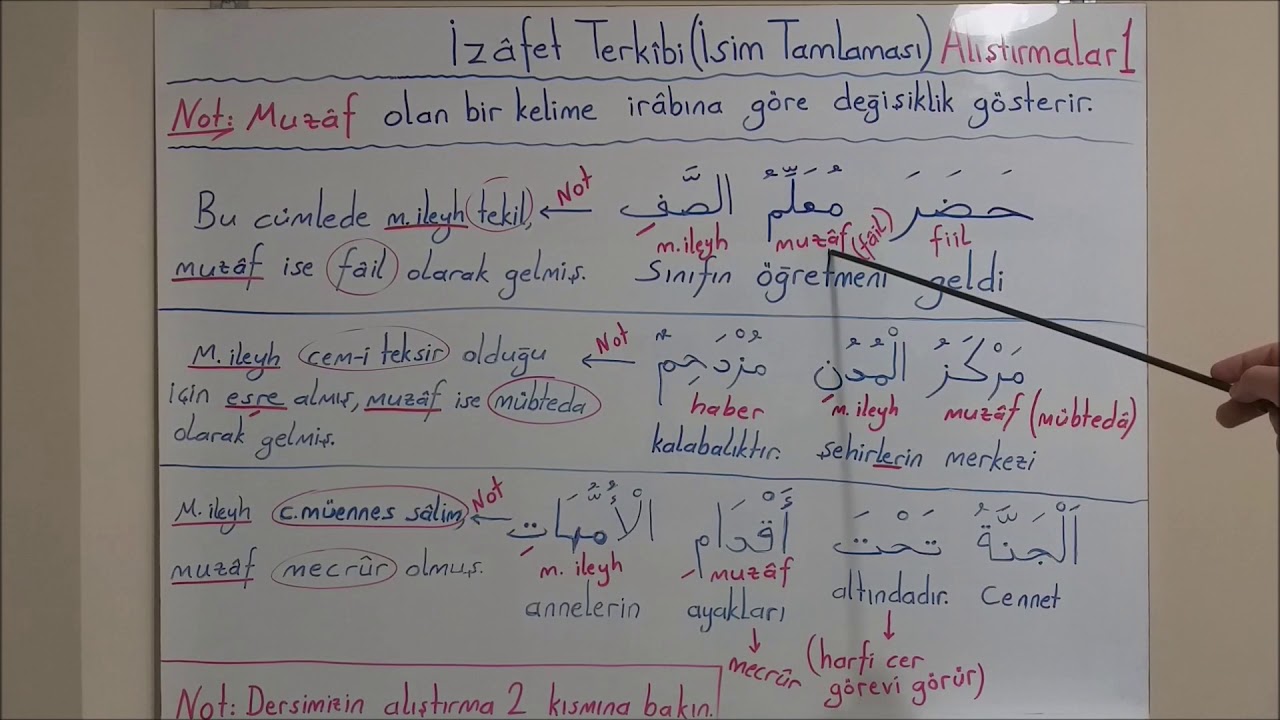 İzâfet Terkîbi (İsim Tamlaması) Alıştırmalar 1
Not: Muzâf olan bir kelime irâbına göre değişiklik gösterir.
حَضَرَ مُعَلِّمُ الصَّفِ
fiil muzâf (fâil) m.ileyh
Sınıfın öğretmeni geldi
Not
Bu cümlede m.ileyh tekil,
muzâf ise fâil olarak gelmiş.
مَرْكَزُ الْمُدُنِ مُزْدَحِمٌ
muzâf (mübtedâ) m.ileyh haber
kalabalıktır. şehirlerin merkezi
Not
M.ileyh cem-i teksir olduğu
için esre almış, muzâf ise mübteda
olarak gelmiş.
اَلْجَنَّةُ تَحْتَ أَقْدَامِ الْأُمَّهَاتِ
muzâf m. ileyh
annelerin ayakları altındadır. Cennet
mecrûr
(harfi cer
görevi görür)
Not
M.ileyh c.müennes sâlim,
muzâf mecrûr olmuş.
Not: Dersimizin alıştırma 2 kısmına bakın.